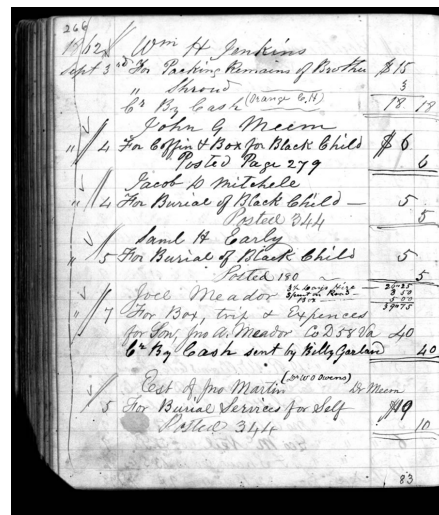 266
1862 Wm H Jenkins
Sept 3rd For Packing Remains of Brother $15
" Shroud 3
Cr By Cash (Orange C.H) 18 18
John G Meem
" 4 For Coffin & Box for Black Child $6
Posted Page 279 6
Jacob D Mitchele
" 4 For Burial of Black Child — 5
Posted 344 5
Saml H Early
" 5 For Burial of Black Child 5
Posted 180 5
Joel Meador 3½ days Hire — 26.25
Spent on Road — 8 50
Box 5 00
39.75
" 7 For Box, trip & Expences
for Son, Jno A. Meador Co D 58 Va 40
Cr By Cash sent by Billy Garland 40
(Dr W O Owens)
Est of Jno Martin Dr Meem
" 5 For Burial Services for Self $10
Posted 344 10
83